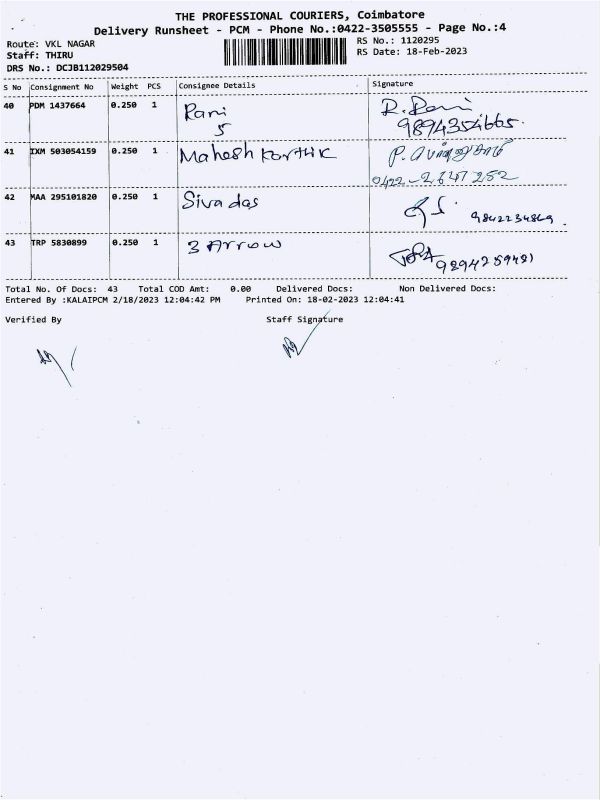 THE PROFESSIONAL COURIERS, Coimbatore
Delivery Runsheet - PCM - Phone No.:0422-3505555 - Page No.:4
Route: VKL NAGAR RS No.: 1120295
Staff: THIRU RS Date: 18-Feb-2023
DRS No.: DCJB112029504
S No Consignment No Weight PCS Consignee Details Signature
40 PDM 1437664 0.250 1 Rani R. Rani
5 9894354665.
41 IXM 503054159 0.250 1 Mahesh Karthik P.
0422-2647252
42 MAA 295101820 0.250 1 Sivadas
9842234869
43 TRP 5830899 0.250 1 3 Arrow
9894259421
Total No. Of Docs: 43 Total COD Amt: 0.00 Delivered Docs: Non Delivered Docs:
Entered By :KALAIPCM 2/18/2023 12:04:42 PM Printed On: 18-02-2023 12:04:41
Verified By Staff Signature